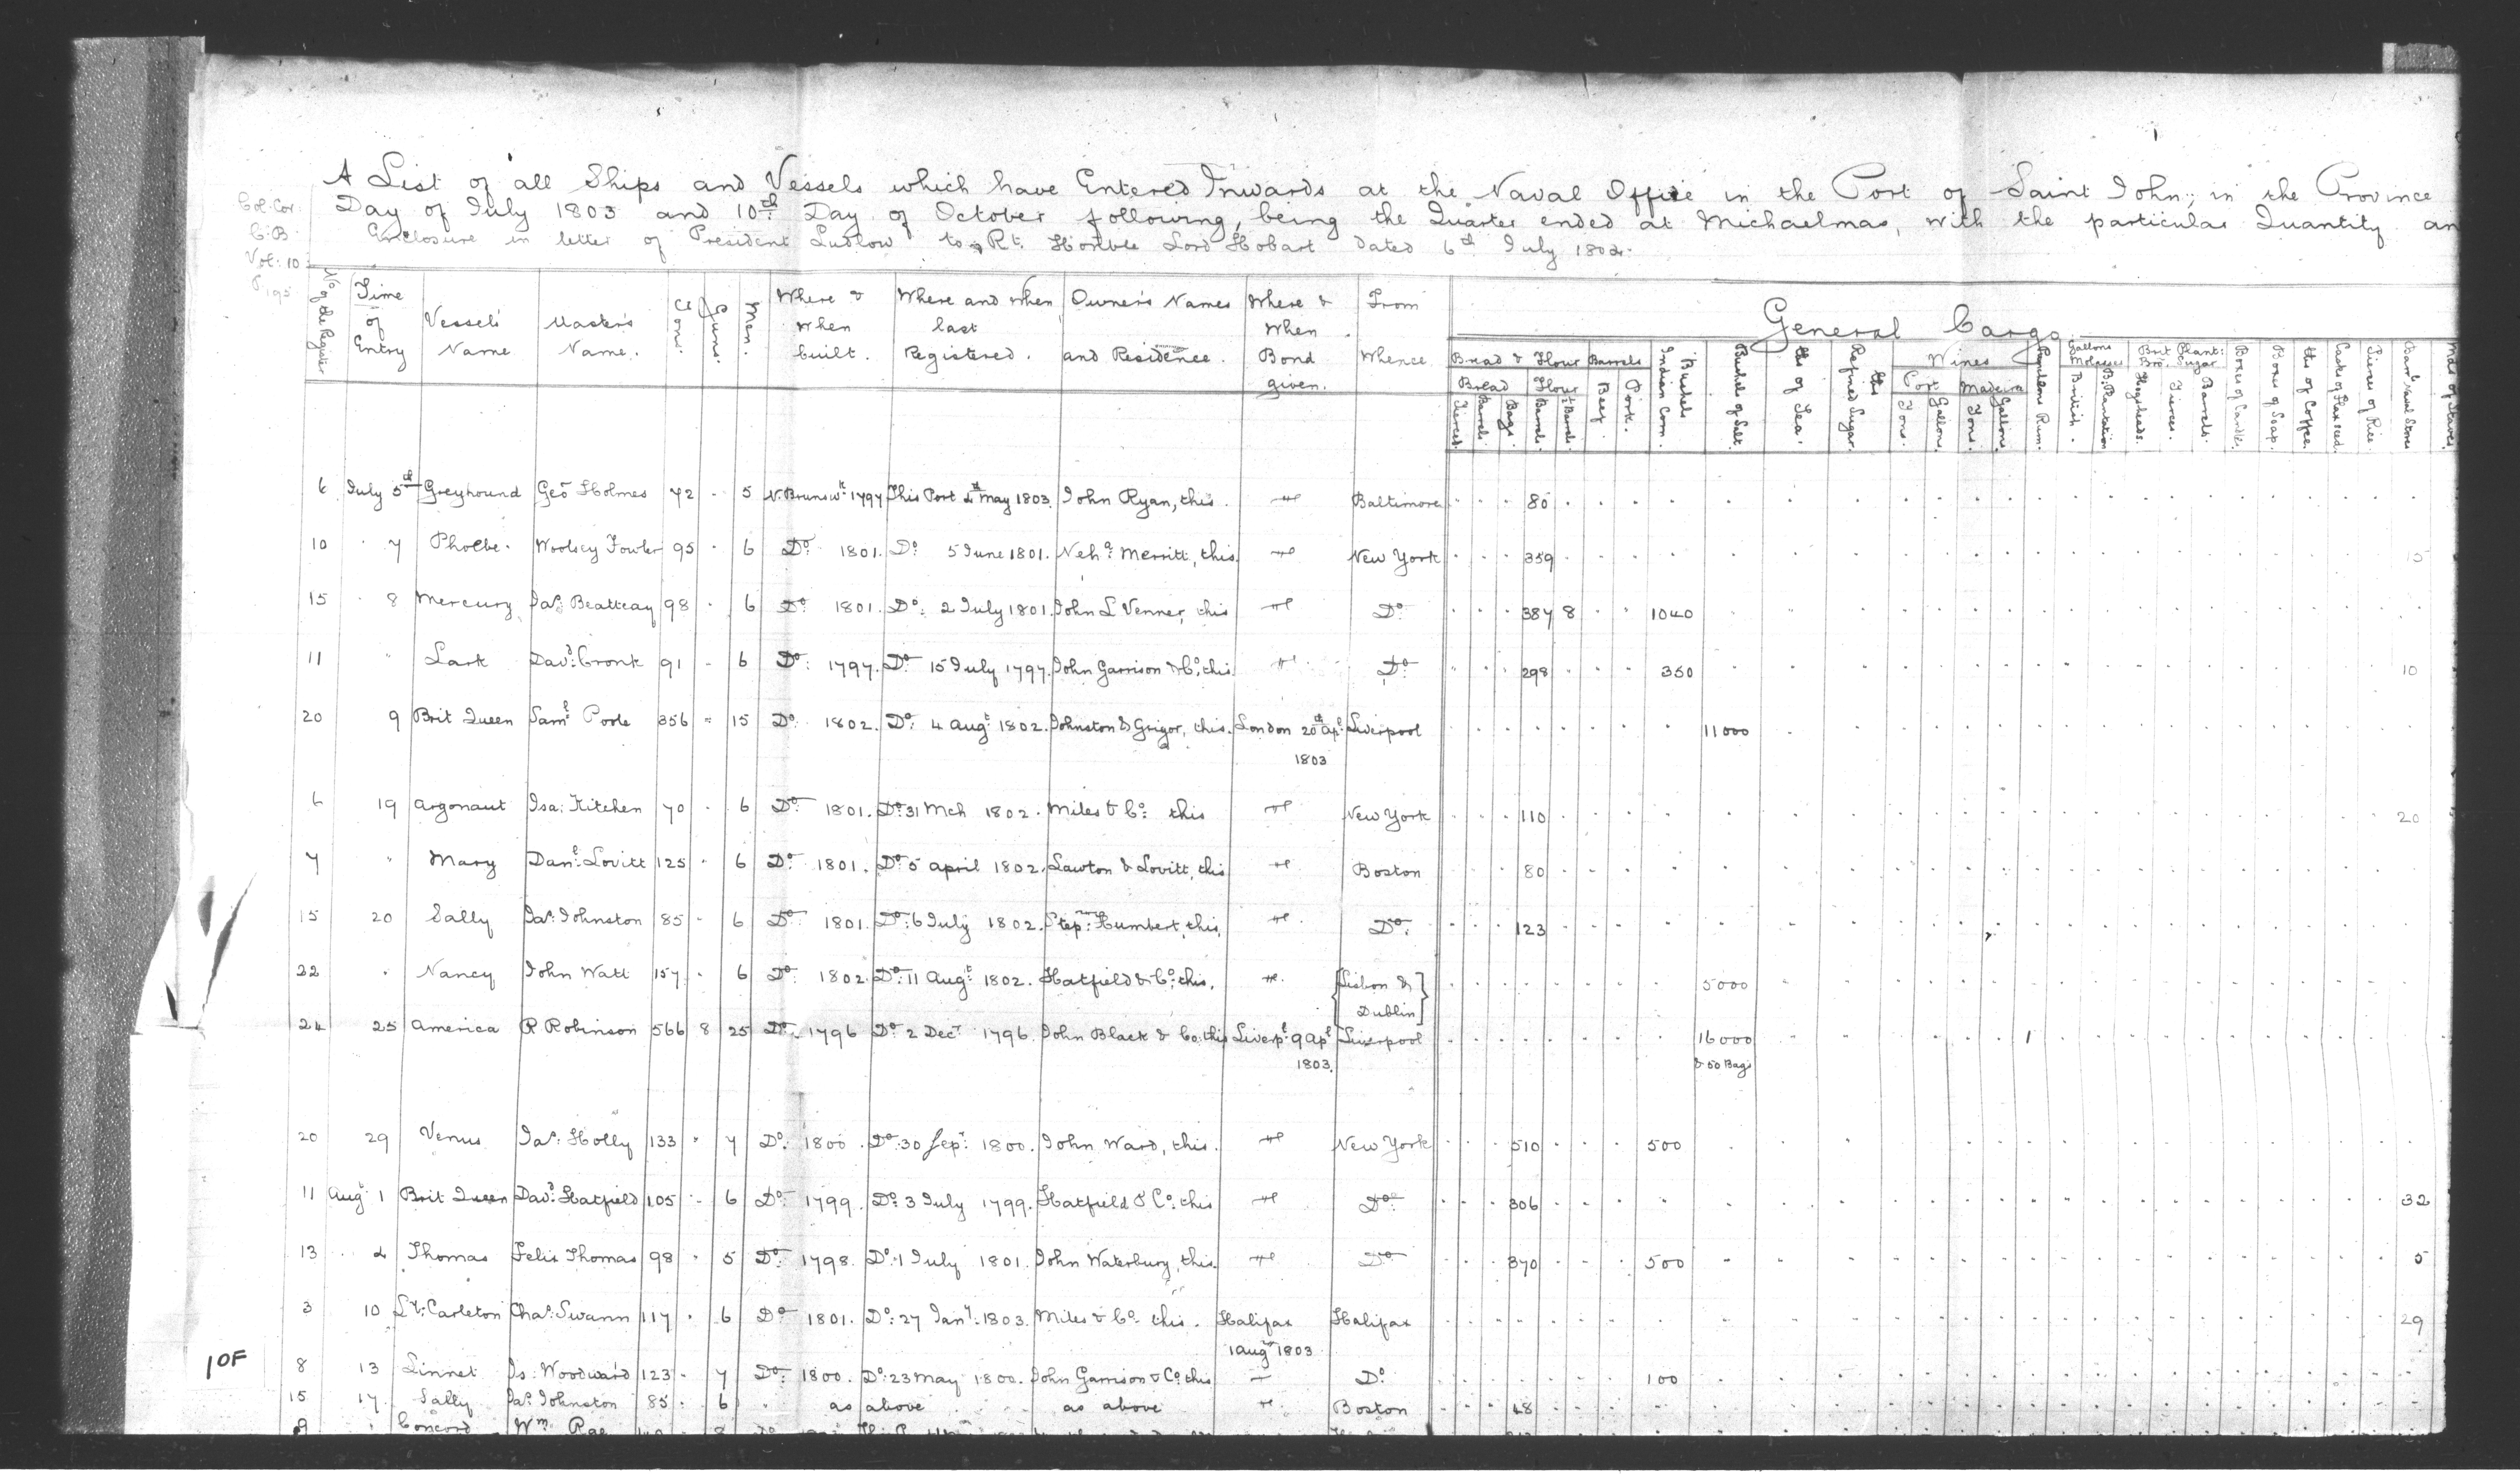 A List of all Ships and Vessels which have Entered Inwards at the Naval Office in the Port of Saint John; in the Province
Day of July 1803 and 10th Day of October following, being the Quarter ended at Michaelmas, with the particular Quantity an
Enclosure in letter of President Ludlow to Rt. Honble Lord Hobart dated 6th July 1804.
Col: Cor:
C: B.
Vol: 10
P 195
No of the Register
Time of Entry
Vessels' Name
Master's Name.
Tons.
Guns.
Men.
Where & When built.
Where and when last Registered.
Owner's Names and Residence.
Where & When Bond given.
From Whence
General Cargo
Bread & Flour
Barrels
Bread
Flour
Tierces
Barrels
Bags
Barrels
½ Barrels
Beef
Pork.
Bushels Indian Corn.
Bushels of Salt.
lbs of Tea.
lbs Refined Sugar.
Wines
Port
Madeira
Tons.
Gallons
Tons.
Gallons
Puncheons Rum.
Gallons Molasses
British.
B. Plantation
Brit Plant: Sugar
Hogsheads.
Tierces.
Barrels.
Boxes of Candles
Boxes of Soap.
lbs of Coffee.
Casks of Flax seed.
Tierces of Rice
Barrls Naval Stores
Mds of Staves
6 July 5th Greyhound Geo Holmes 72 - 5 N. Brunswk 1797 This Port 4th May 1803. John Ryan, this. Baltimore 80
10 7 Phoebe. Woolsey Fowler 95 - 6 Do 1801. Do 5 June 1801. Neh. Merritt, this. New York 359 15
15 8 Mercury Jas Beatteay 98 - 6 Do 1801. Do: 2 July 1801. John L Venner, this Do 387 8 1040
11 " Lark Davd: Cronk 91 - 6 Do: 1797. Do 15 July 1797. John Garrison & Co. this Do 298 350 10
20 9 Brit Queen Saml Poole 356 - 15 Do 1802. Do: 4 Augt 1802. Johnston & Grigor, this. London 20th Apl Liverpool 11000
1803
6 19 Argonaut Isa: Kitchen 70 - 6 Do 1801. Do: 31 Mch 1802. Miles & Co: this New York 110 20
7 " Mary Danl: Lovitt 125 - 6 Do 1801. Do: 5 April 1802. Lawton & Lovitt, this Boston 80
15 20 Sally Jas Johnston 85 - 6 Do 1801. Do: 6 July 1802. Step. Humbert, this. Do: 123
22 . Nancy John Watt 157 - 6 Do 1802 Do: 11 Augt 1802. Hatfield & Co: this. Lisbon & 5000
Dublin
24 25 America R Robinson 566 8 25 Do 1796 Do 2 Decr 1796. John Black & Co: this Liverpl: 9 Apl Liverpool 16000 1
1803. & 50 Bags
20 29 Venus Jas: Holly 133 - 7 Do: 1800. Do: 30 Sept 1800. John Ward, this. New York 510 500
11 Augt 1 Brit Queen Davd Hatfield 105 - 6 Do: 1799. Do: 3 July 1799. Hatfield & Co: this Do: 306 32
13 4 Thomas Felix Thomas 98 - 5 Do: 1798. Do: 1 July 1801. John Waterbury, this. Do 370 500 5
3 10 Lt: Carleton Chas: Swann 117 - 6 Do 1801. Do: 27 Jany: 1803. Miles & Co: this. Halifax Halifax 29
1 Augt 1803
8 13 Linnet Is: Woodward 123 - 7 Do: 1800. Do: 23 May 1800. John Garrison & Co: this Do: 100
15 17. Sally Jas Johnston 85. 6 as above as above Boston 48
9 Concord Wm. Rae
10F